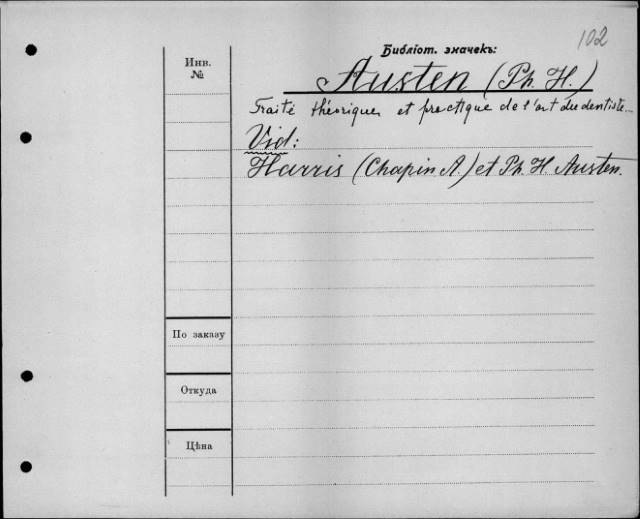 102
Библіот. значекъ:
Инв.
№
Austen (Ph. H.)
Traité théorique et practique de l'art du dentiste...
Vid:
Harris (Chapin A.) et Ph. H. Austen.
По заказу
Откуда
Цѣна